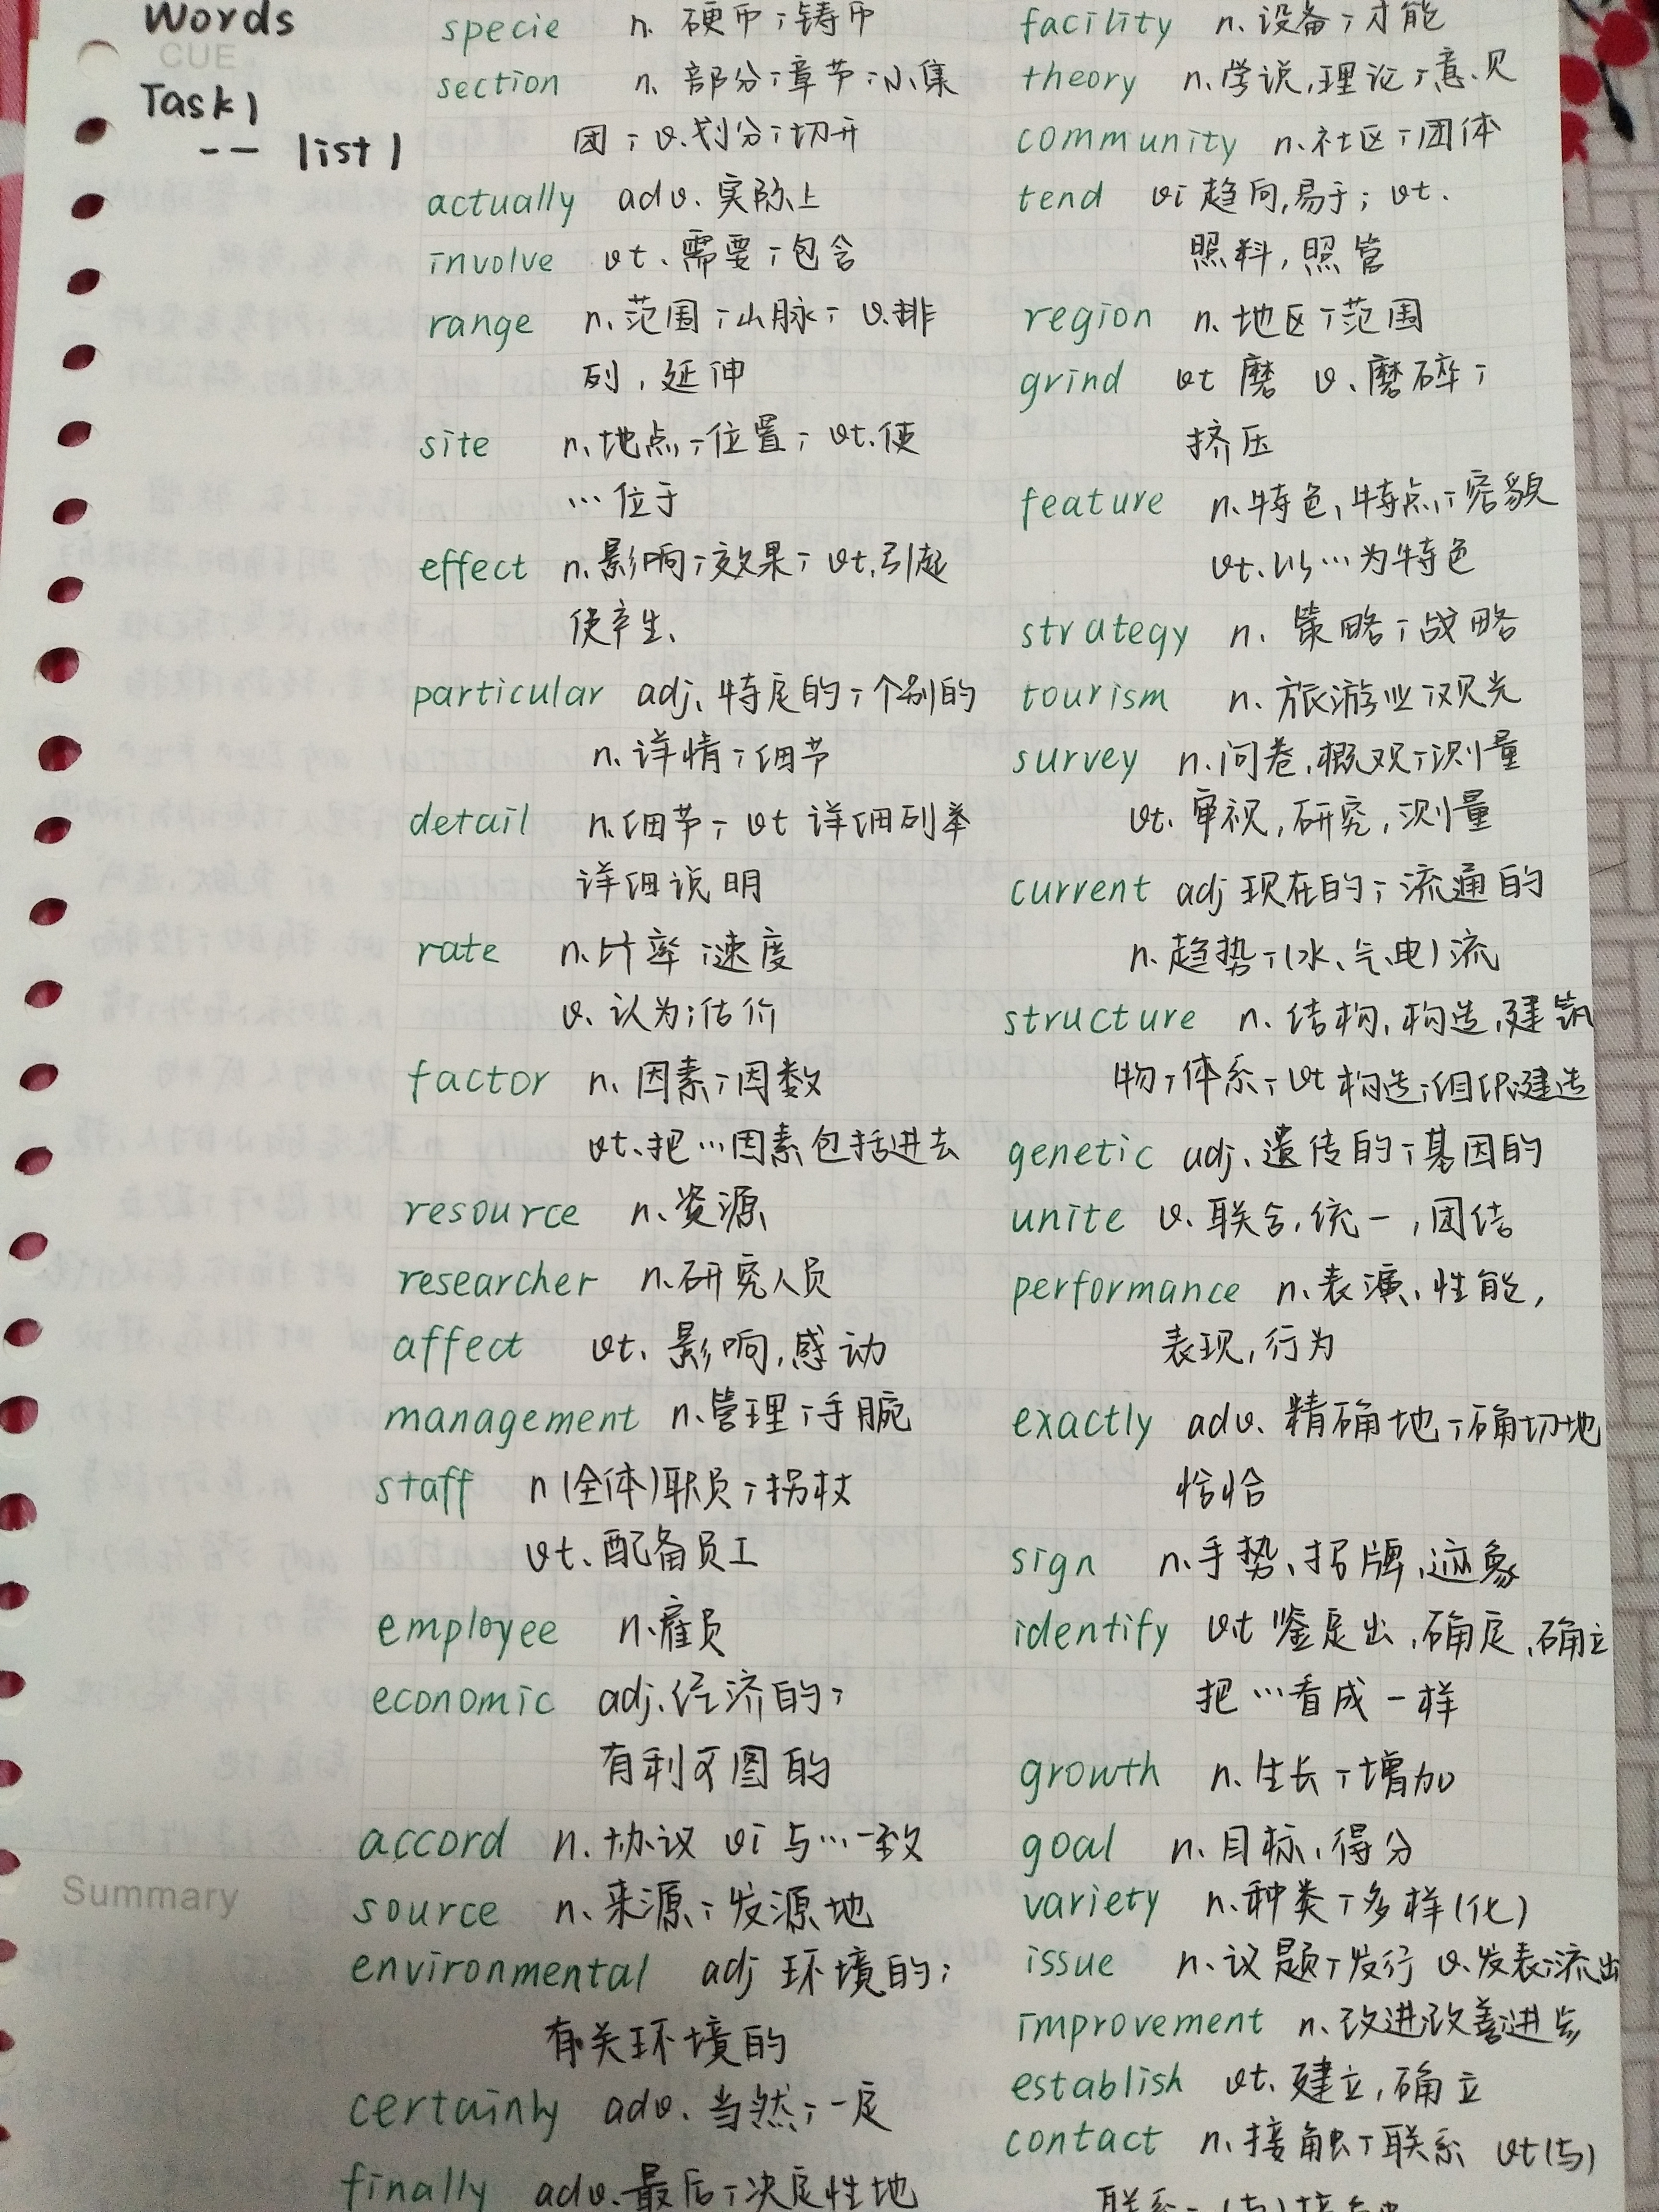 Words
CUE
Task1
-- list 1
specie n. 硬币；铸币
section n. 部分；章节；小集
团；v.划分；切开
actually adv. 实际上
involve vt. 需要；包含
range n.范围；山脉；v.排
列，延伸
site n.地点；位置；vt.使
…位于
effect n.影响；效果；vt.引起
使产生、
particular adj. 特定的；个别的
n.详情；细节
detail n.细节；vt 详细列举
详细说明
rate n.比率；速度
v. 认为；估价
factor n. 因素；因数
vt.把…因素包括进去
resource n.资源
researcher n.研究人员
affect vt. 影响，感动
management n.管理；手腕
staff n (全体)职员；拐杖
vt.配备员工
employee n.雇员
economic adj.经济的；
有利可图的
accord n.协议 vi 与…一致
source n.来源；发源地
environmental adj 环境的；
有关环境的
certainly adv. 当然；一定
finally adv.最后；决定性地
facility n.设备；才能
theory n.学说，理论；意见
community n.社区；团体
tend vi 趋向，易于；vt.
照料，照管
region n.地区；范围
grind vt 磨 v.磨碎；
挤压
feature n.特色，特点；容貌
vt.以…为特色
strategy n. 策略；战略
tourism n.旅游业；观光
survey n.问卷，概观；测量
vt.审视，研究，测量
current adj 现在的；流通的
n.趋势；(水、气、电)流
structure n.结构，构造，建筑
物；体系；vt 构造；组织；建造
genetic adj.遗传的；基因的
unite v.联合，统一，团结
performance n.表演、性能，
表现，行为
exactly adv. 精确地；确切地
恰恰
sign n.手势、招牌、迹象
identify vt 鉴定出，确定，确立
把…看成一样
growth n.生长；增加
goal n.目标、得分
variety n.种类；多样(化)
issue n.议题；发行 v.发表；流出
improvement n.改进改善进步
establish vt.建立，确立
contact n.接触；联系 vt(与)
Summary